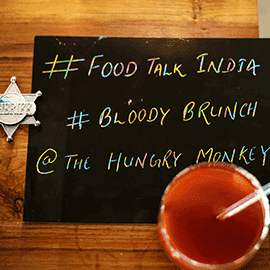 # FOOD TALK INDIA
# BLOODY BRUNCH
@ THE HUNGRY MONKEY